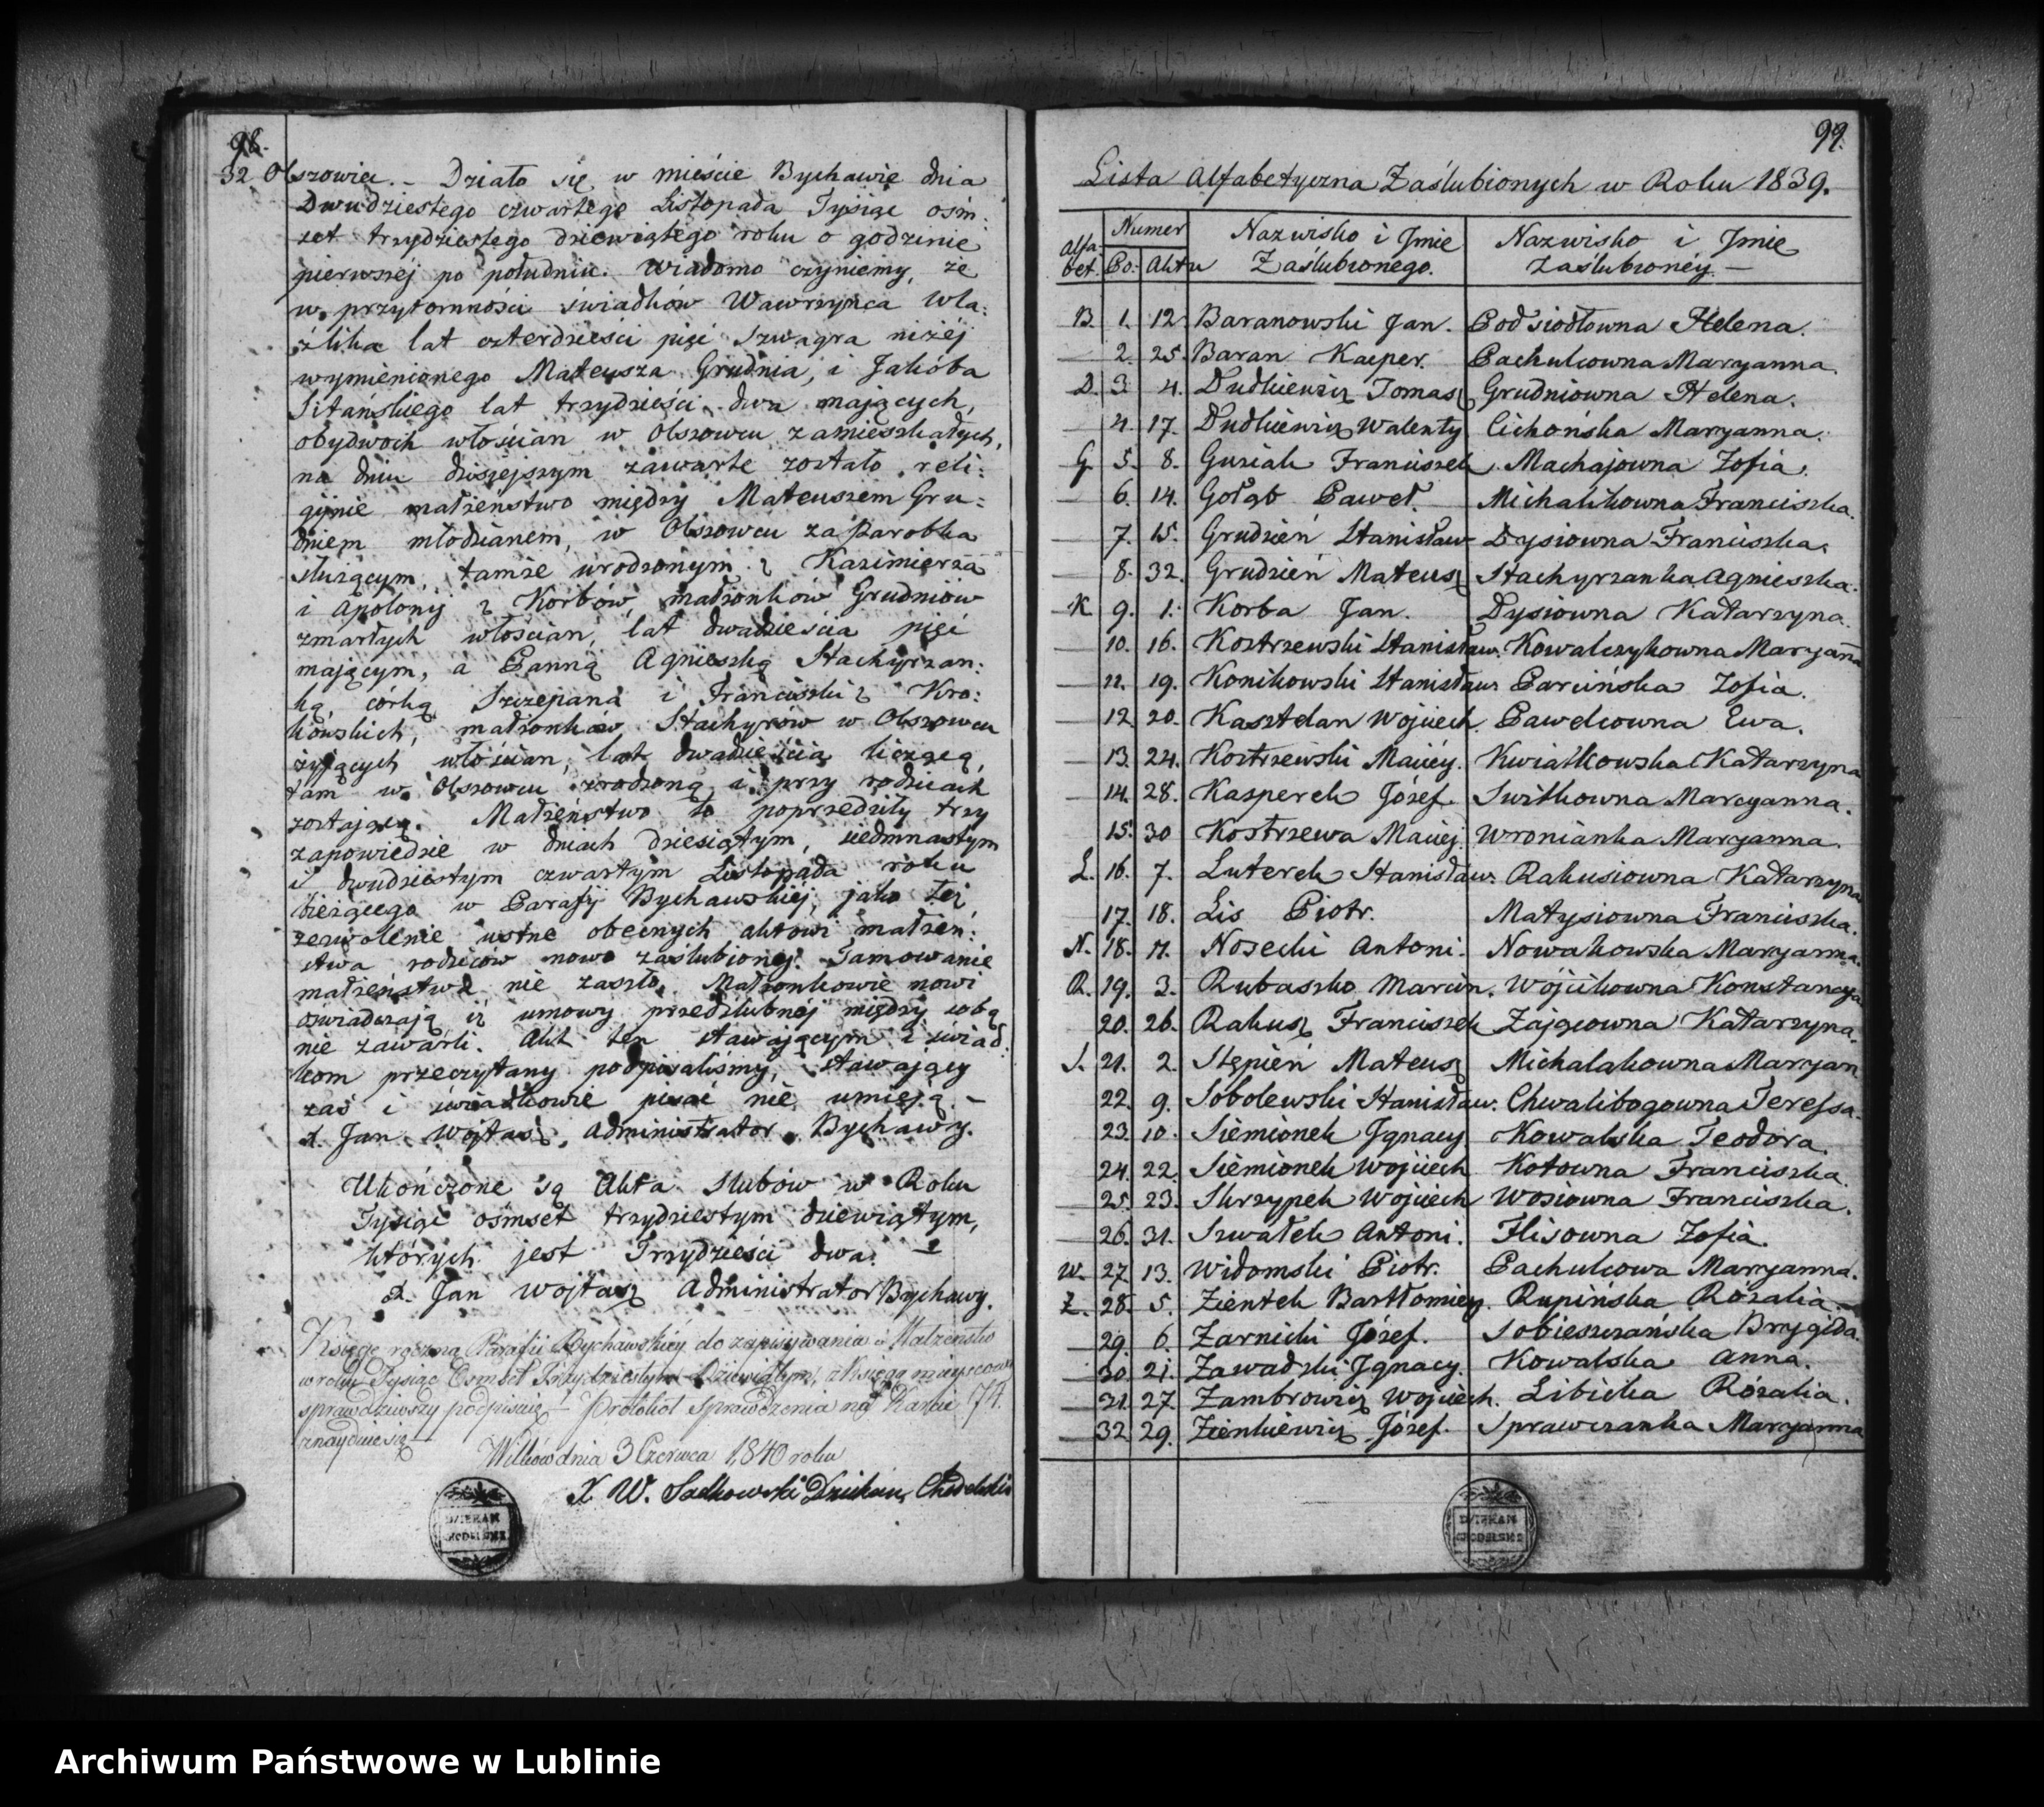 98.
32 Olszowiec. – Działo się w mieście Bychawie dnia
Dwudziestego czwartego Listopada Tysiąc ośm:
set trzydziestego dziewiątego roku o godzinie
pierwszéj po południu. Wiadomo czyniemy, że
w przytomności świadków Wawrzyńca Wla:
źlika lat czterdzieści pięć Szwagra niżéj
wymienionego Mateusza Grudnia, i Jakóba
Sitańskiego lat trzydzieści dwa mających,
obydwóch włościan w Olszowcu zamieszkałych,
na dniu dzisiejszym zawarte zostało reli:
gijnie małżeństwo między Mateuszem Gru:
dniem młodzianem, w Olszowcu za Parobka
służącym, tamże urodzonym z Kazimierza
i Apolonij z Korbów, małżonków Grudniów
zmarłych włościan, lat dwadzieścia pięć
mającym, a Panną Agnieszką Stachyrzan:
ką, córką Szczepana i Franciszki z Kro:
kowskich, małżonków Stachyrów w Olszowcu
żyjących włościan, lat dwadzieścia liczącą,
tam w Olszowcu zrodzoną i przy rodzicach
zostającą. Małżeństwo to poprzedziły trzy
zapowiedzie w dniach dziesiątym, siedmnastym
i dwudziestym czwartym Listopada roku
bieżącego w Parafij Bychawskiéj, jako téż
zezwolenie ustne obecnych aktowi małżeń:
stwa rodziców nowo zaślubionéj. Tamowanie
małżeństwa nie zaszło. Małżonkowie nowi
oświadczają iż umowy przedślubnéj między sobą
nie zawarli. Akt ten stawającym i świad:
kom przeczytany podpisaliśmy, stawający
zaś i świadkowie pisać nie umieją. –
X. Jan Wojtasz, Administrator Bychawy.
Ukończone są Akta Slubów w Roku
Tysiąc ośmset trzydziestym dziewiątym,
których jest Trzydzieści dwa. –
X. Jan Wojtasz Administrator Bychawy.
Księgę roczną Parafii Bychawskiéy do zapisywania Małżeństw
w roku Tysiąc Osmset Trzydziestym Dziewiątym, z Księgą mieyscową
sprawdziwszy podpisuię – Protokół Sprawdzenia na Karcie 74.
znayduie się –
Wilków dnia 3 Czerwca 1840 roku
X W. Sadkowski Dziekan Chodelski
DZIEKAN
CHODELSKI
99.
Lista Alfabetyczna Zaślubionych w Roku 1839.
Alfa bet. | Numer Po. | Aktu | Nazwisko i Jmie Zaślubionego. | Nazwisko i Jmie Zaślubionéy. –
B. 1. 12 Baranowski Jan. Podsiodłowna Helena.
2. 25. Baran Kacper. Pachulcowna Maryanna.
D. 3. 4. Dudkiewicz Tomasz Grudniowna Helena.
4. 17. Dudkiewicz Walenty Cichońska Maryanna.
G. 5. 8. Guziak Franciszek Machajowna Zofia.
6. 14. Gołąb Paweł. Michalikowna Franciszka.
7. 15. Grudzień Stanisław Dysiowna Franciszka.
8. 32. Grudzień Mateusz Stachyrzanka Agnieszka.
K 9. 1. Korba Jan. Dysiowna Katarzyna.
10. 16. Kostrzewski Stanisław. Kowalczykowna Maryanna
11. 19. Konikowski Stanisław Parcińska Zofia.
12 20. Kasztelan Wojciech Pawelcowna Ewa.
13. 24. Kostrzewski Maciéy. Kwiatkowska Katarzyna
14. 28. Kasperek Józef. Switkowna Maryanna.
15. 30 Kostrzewa Maciej. Wronianka Maryanna.
L. 16. 7. Luterek Stanisław. Rakusiowna Katarzyna
17. 18. Lis Piotr. Matysiowna Franciszka.
N. 18. 11. Nosecki Antoni. Nowakowska Maryanna.
R. 19. 3. Rubaszko Marcin. Wójcikowna Konstancya
20. 26. Rakusz Franciszek Zającowna Katarzyna.
S. 21. 2. Stępień Mateusz Michalakowna Maryan
22. 9. Sobolewski Stanisław. Chwalibogowna Teressa.
23. 10. Siemionek Jgnacy Kowalska Teodora.
24. 22. Siemionek Wojciech Kotowna Franciszka.
25. 23. Skrzypek Wojciech Wosiowna Franciszka.
26. 31. Szwałek Antoni. Flisowna Zofia.
W. 27. 13. Widomski Piotr. Pachulcowa Maryanna.
Z. 28. 5. Zientek Bartłomiey. Rupinska Rózalia.
29. 6. Zarnicki Józef. Sobieszczańska Brygida.
30. 21. Zawadzki Jgnacy. Kowalska Anna.
31. 27. Zambrowicz Wojciech. Libicka Rózalia.
32. 29. Zienkiewicz Józef. Sprawczanka Maryanna
DZIEKAN
CHODELSKI
Archiwum Państwowe w Lublinie